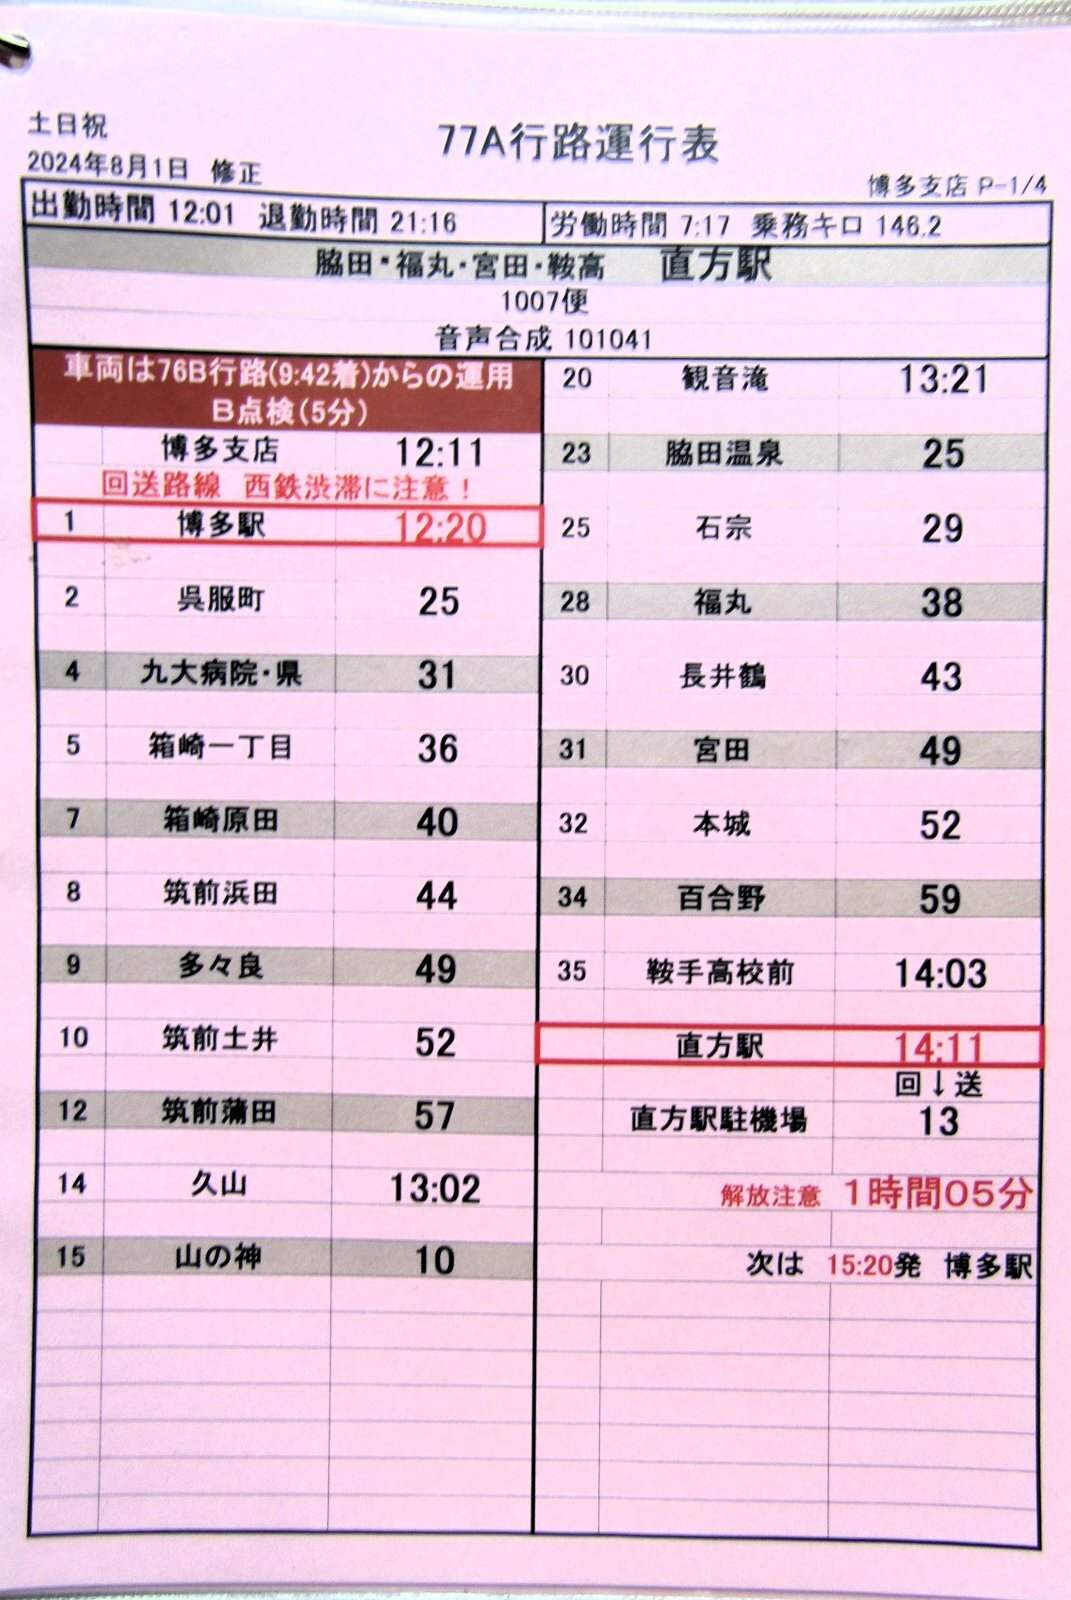 土日祝
77A行路運行表
2024年8月1日 修正
博多支店 P-1/4
出勤時間 12:01 退勤時間 21:16
労働時間 7:17 乗務キロ 146.2
脇田・福丸・宮田・鞍高 直方駅
1007便
音声合成 101041
車両は76B行路(9:42着)からの運用
B点検(5分)
博多支店 12:11
回送路線 西鉄渋滞に注意！
1 博多駅 12:20
2 呉服町 25
4 九大病院・県 31
5 箱崎一丁目 36
7 箱崎原田 40
8 筑前浜田 44
9 多々良 49
10 筑前土井 52
12 筑前蒲田 57
14 久山 13:02
15 山の神 10
20 観音滝 13:21
23 脇田温泉 25
25 石宗 29
28 福丸 38
30 長井鶴 43
31 宮田 49
32 本城 52
34 百合野 59
35 鞍手高校前 14:03
直方駅 14:11
回↓送
直方駅駐機場 13
解放注意 1時間05分
次は 15:20発 博多駅